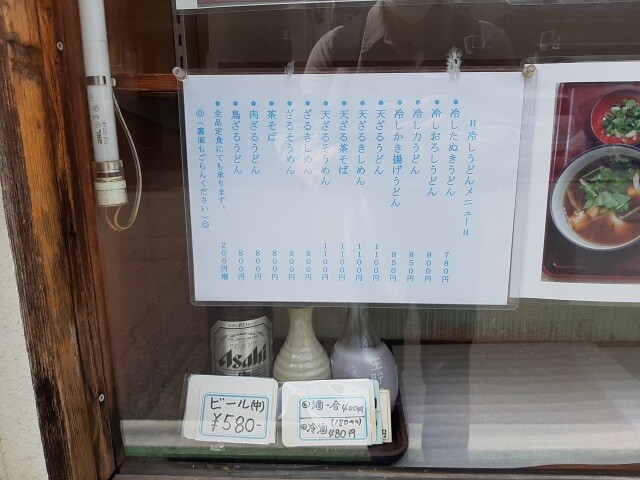 〃冷しうどんメニュー〃
●冷したぬきうどん 780円
●冷しおろしうどん 800円
●冷し力うどん 850円
●冷しかき揚げうどん 850円
●天ざるうどん 1100円
●天ざるきしめん 1100円
●天ざる茶そば 1100円
●天ざるそうめん 1100円
●ざるきしめん 800円
●ざるそうめん 800円
●茶そば 800円
●肉ざるうどん 800円
●鳥ざるうどん 800円
●全品定食にても承ります。 200円増
◎(裏面もごらんください)◎
Asahi
生貯
ビール(中)
¥580-
酒一合400円
(180ml)
冷酒 480円
円